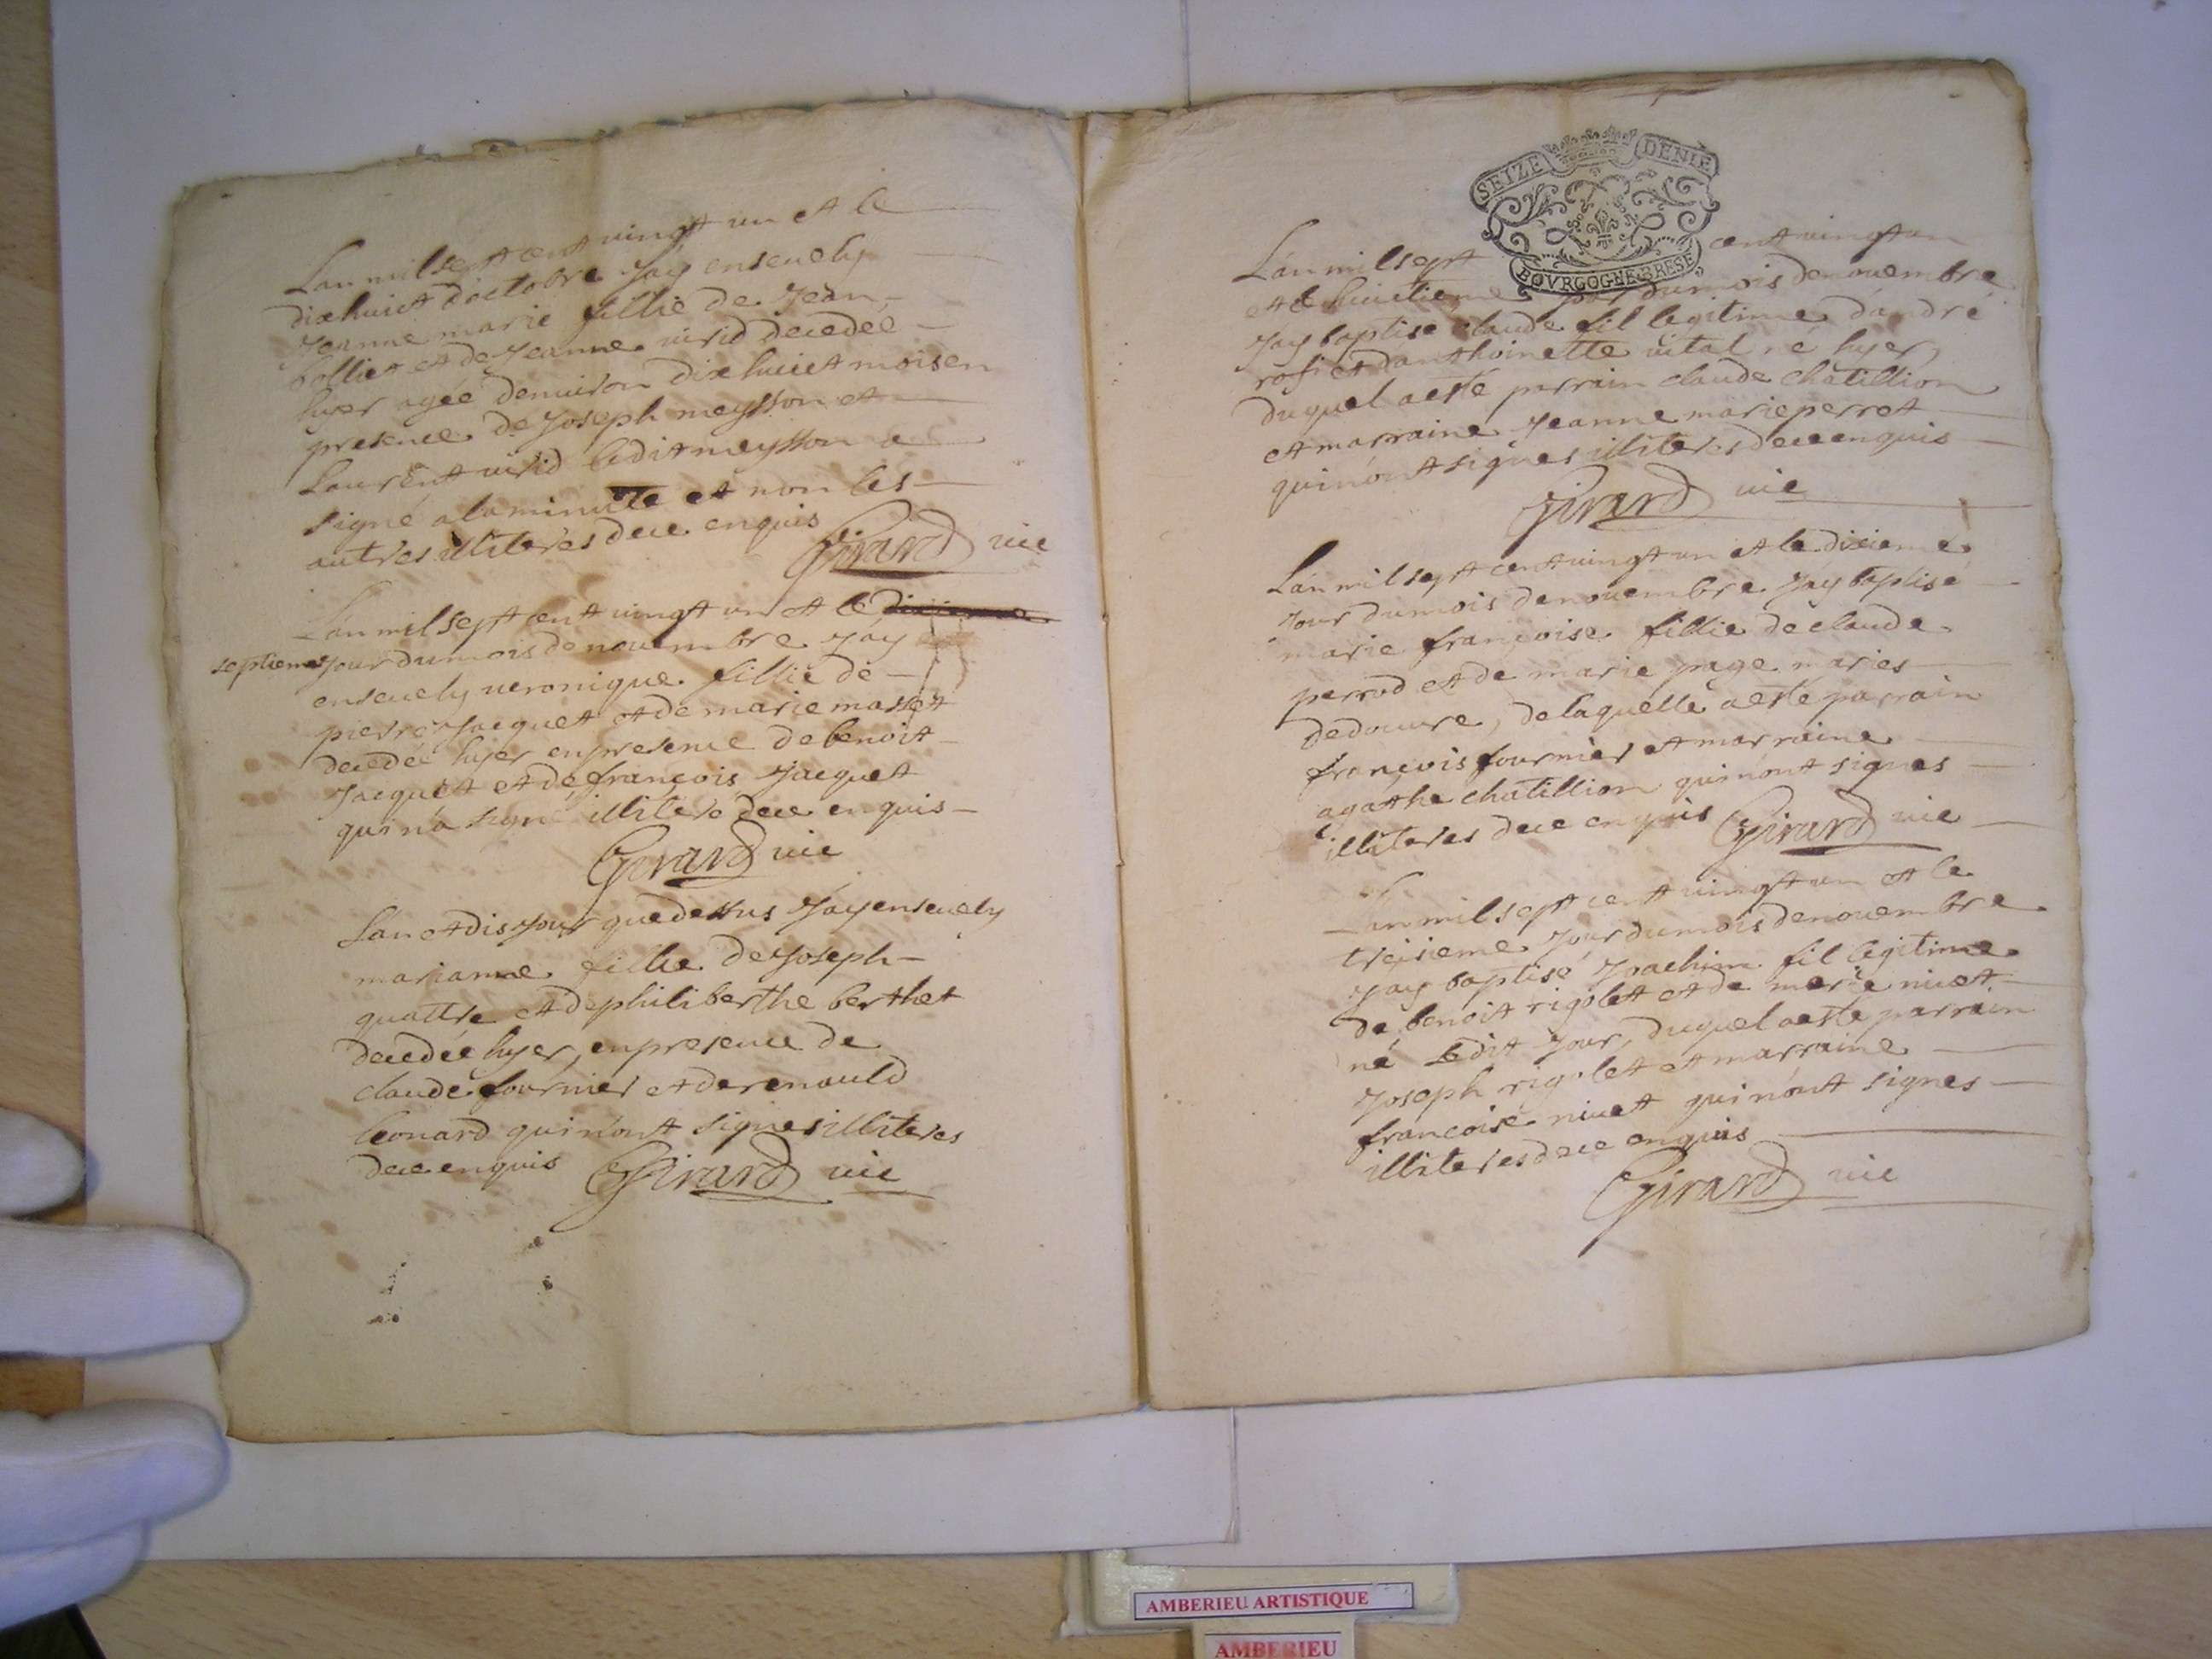 Lan mil sept cent vingt un et le
dixhuict doctobre Jay ensevely
Jeanne marie fillie de Jean
bolliet et de Jeanne virid decedeé
hyer ageé denviron dix huict mois en
presence de Joseph meysson et
Laurent virid ledit meysson a
signé a la minutte et non les
autres illiteres de ce enquis
Girard vic
Lan mil sept cent vingt un et le
septieme Jour du mois de novembre Jay
ensevely veronique fillie de
pierre Jacquet et de marie massot
decedeé hyer en presence de benoit
Jacquet et de françois Jacquet
qui n'a signé illiteré de ce enquis
Girard vic
Lan et dis Jour que dessus Jay ensevely
marianne fillie de Joseph
quattre et de philiberthe berthet
decedée hyer, en presence de
claude fournier et de renauld
leonard qui n'ont signes illiteres
de ce enquis Girard vic
SEIZE DENIE
BOVRGOGNE BRESE
Lan mil sept cent vingt un
et le huictieme jour du mois de novembre
Jay baptisé claude fil legitime d'andré
rosi et danthoinette vital né hyer,
duquel a esté parrain claude chatillion
et marraine Jeanne marie perrot
qui n'ont signes illiteres de ce enquis
Girard vic
Lan mil sept cent vingt un et le dixieme
Jour du mois de novembre Jay baptisé
marie françoise fillie de claude
perrod et de marie page maries
de douvre, de laquelle a esté parrain
françois fournier et marraine
agathe chatillion qui n'ont signes
illiteres de ce enquis Girard vic
Lan mil sept cent vingt un et le
treisieme Jour du mois de novembre
Jay baptisé Joachim fil legitime
de benoit rigolet et de marie nivet
né ledit Jour, duquel a esté parrain
Joseph rigolet et marraine
françoise nivet qui n'ont signes
illiteres de ce enquis
Girard vic
AMBERIEU ARTISTIQUE
AMBERIEU